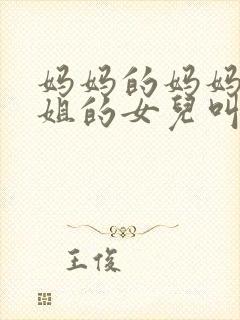 妈妈的妈妈
姐的女兒叫
王俊